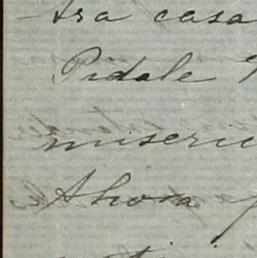 tra casa
Pidale
miseric
Ahora